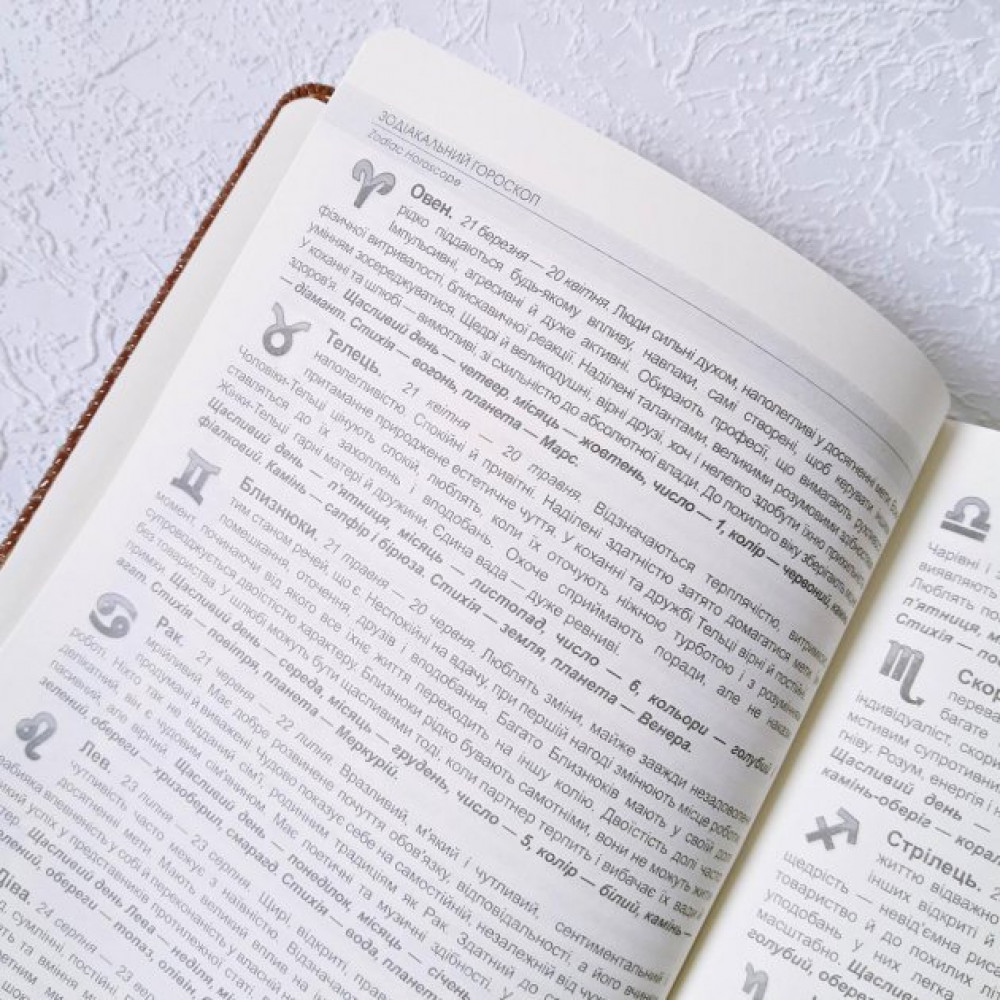 ЗОДІАКАЛЬНИЙ ГОРОСКОП
Zodiac Horoscope
Овен. 21 березня — 20 квітня. Люди сильні духом, наполегливі у досягненні мети.
рідко піддаються будь-якому впливу, навпаки, самі створені, щоб керувати
Імпульсивні, агресивні й дуже активні. Обирають професії, що вимагають рухливості,
фізичної витривалості, блискавичної реакції. Наділені талантами, великими розумовими здібностями,
умінням зосереджуватися. Щедрі й великодушні, вірні друзі, хоч і нелегко здобути їхню прихильність.
У коханні та шлюбі — вимогливі, зі схильністю до абсолютної влади. До похилого віку зберігають
здоров'я. Щасливий день — четвер, місяць — жовтень, число — 1, колір — червоний, камінь
— діамант. Стихія — вогонь, планета — Марс.
Телець. 21 квітня — 20 травня. Відзначаються терплячістю, витримкою,
наполегливістю. Спокійні й привітні. Наділені здатністю затято домагатися мети.
притаманне природжене естетичне чуття. У коханні та дружбі Тельці вірні й постійні.
Чоловіки-Тельці цінують спокій, люблять, коли їх оточують ніжною турботою і з розумінням
ставляться до їх захоплень і вподобань. Охоче сприймають поради, але не накази.
Жінки-Тельці гарні матері й дружини. Єдина вада — дуже ревниві.
Щасливий день — п'ятниця, місяць — листопад, число — 6, кольори — голубий і
фіалковий. Камінь — сапфір і бірюза. Стихія — земля, планета — Венера.
Близнюки. 21 травня — 20 червня. Люблять зміни, майже завжди незадоволені
тим станом речей, що є. Неспокійні на вдачу, при першій нагоді змінюють місце роботи,
помешкання, оточення, друзів і вподобання. Багато Близнюків мають у своїй долі
момент, починаючи від якого все їхнє життя переходить на іншу колію. Двоїстість долі часто
супроводжується двоїстістю характеру. Близнюки рідко бувають самотніми, вони не можуть жити
без товариства. У шлюбі можуть бути щасливими тоді, коли партнер терпить і вибачає їх вади і
примхи. Щасливий день — середа, місяць — грудень, число — 5, колір — білий, камінь —
агат. Стихія — повітря, планета — Меркурій.
Рак. 21 червня — 22 липня. Вразливий, м'який і чутливий, сентиментальний
мрійливий. Має добре розвинене почуття обов'язку, відповідальності, а його
продумані й виважені. Чудово показує себе на самостійній, незалежній від
роботі. Ніхто так не відданий сім'ї, родинним традиціям як Рак. Здатний
делікатний, він є чудовим сім'янином. Має поетичні та музичні здібності. У
пасивний, але вірний. Щасливий день — понеділок, місяць — січень,
зелений, обереги — хризоберил, смарагд. Стихія — вода, планета
Лев. 23 липня — 23 серпня. Щирі, відкриті,
чутливість часто межує з наївністю. Відзначаються
досягненні мети. Мають великий вплив на
впевненість у собі й переконаність у власній
успіх у представників протилежної статі
Щасливий день Лева — неділя,
обереги — топаз, олівін,
Діва. 24 серпня — 23
сумлінні, постійні
та вміння
Чарівні і
виявляють
Люблять
п'ятниця,
Стихія —
Скорпіон
багате
індивідуаліст,
мстивим супротивник
гніву. Розум, енергія і
Щасливий день —
камінь-оберіг — корал
Стрілець.
життю відважно
інших відкриті й
щедрість — невід'ємна
товариство й до похилих літ
уподобань у них легка,
масштабно. Щасливий
голубий,